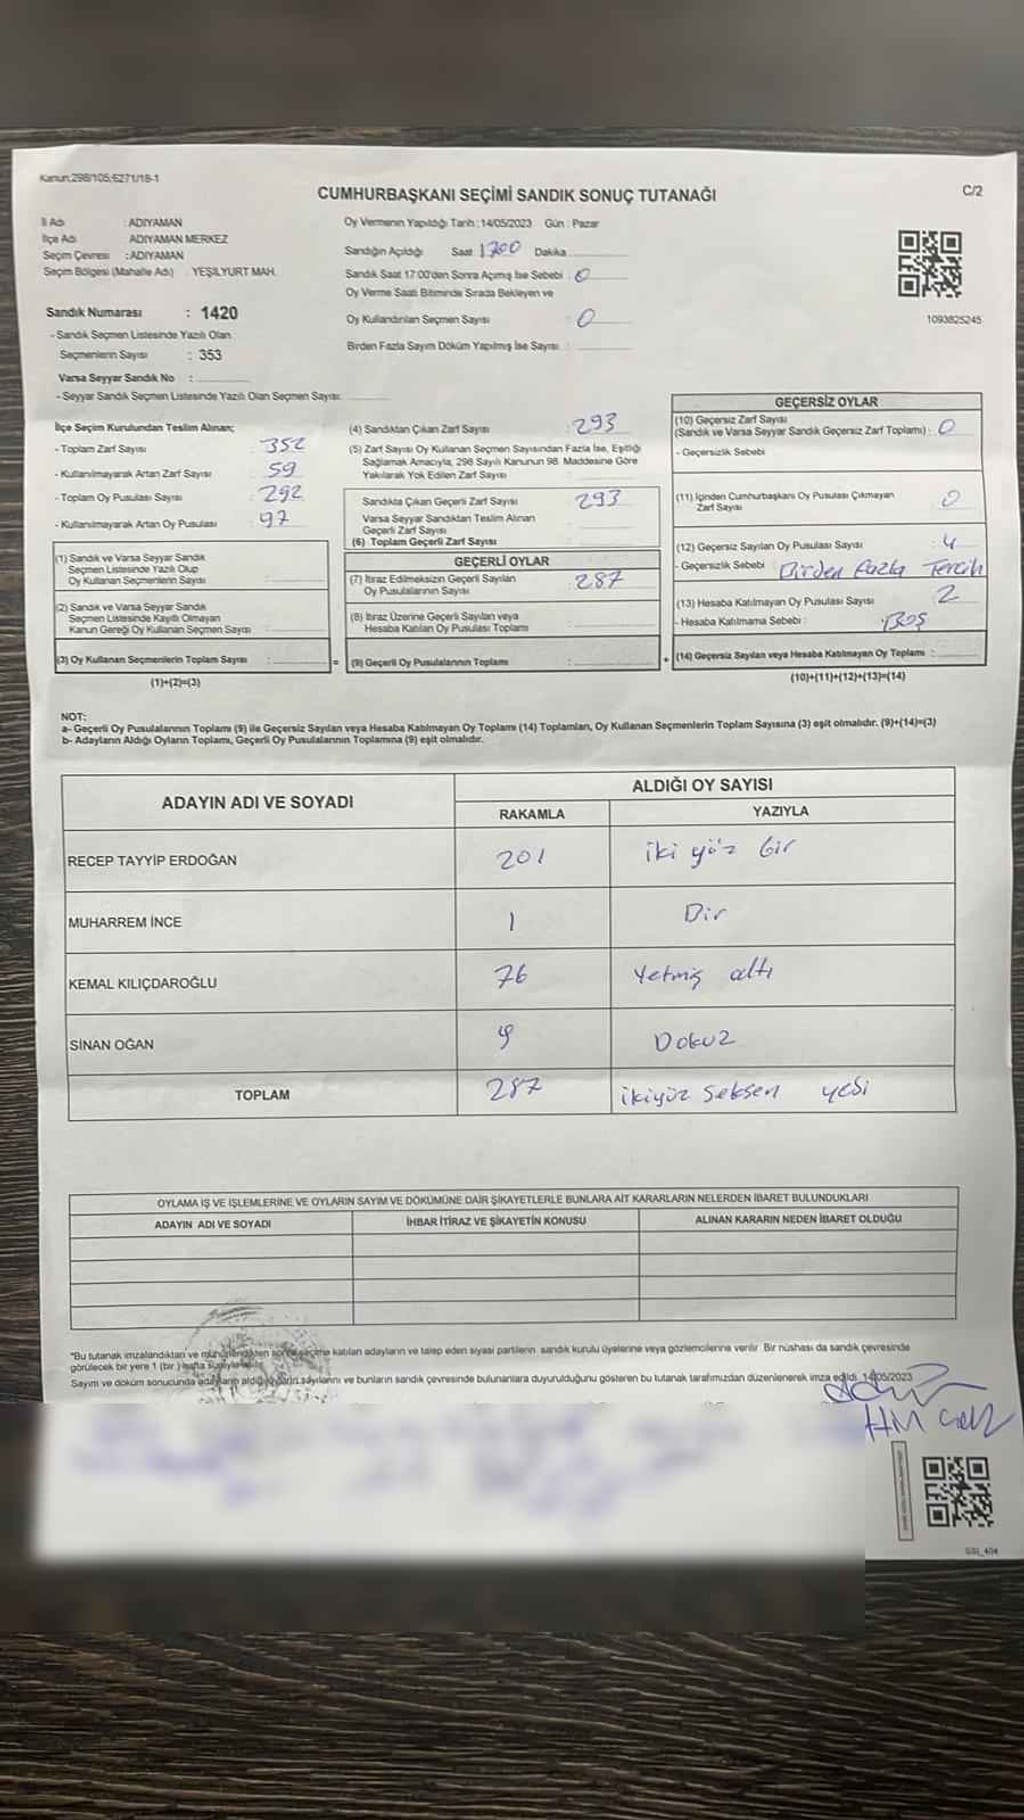 Kanun:298/105;6271/18-1
CUMHURBAŞKANI SEÇİMİ SANDIK SONUÇ TUTANAĞI
C/2
İl Adı : ADIYAMAN
İlçe Adı ADIYAMAN MERKEZ
Seçim Çevresi : ADIYAMAN
Seçim Bölgesi (Mahalle Adı) YEŞİLYURT MAH.
Sandık Numarası : 1420
- Sandık Seçmen Listesinde Yazılı Olan
Seçmenlerin Sayısı : 353
Varsa Seyyar Sandık No :
- Seyyar Sandık Seçmen Listesinde Yazılı Olan Seçmen Sayısı:
Oy Vermenin Yapıldığı Tarih : 14/05/2023 Gün : Pazar
Sandığın Açıldığı Saat 1700 Dakika
Sandık Saat 17:00'den Sonra Açımış İse Sebebi : 0
Oy Verme Saati Bitiminde Sırada Bekleyen ve
Oy Kullandırılan Seçmen Sayısı 0
Birden Fazla Sayım Döküm Yapılmış İse Sayısı :
1093825245
İlçe Seçim Kurulundan Teslim Alınan;
- Toplam Zarf Sayısı 352
- Kullanılmayarak Artan Zarf Sayısı 59
- Toplam Oy Pusulası Sayısı 292
- Kullanılmayarak Artan Oy Pusulası 97
(1) Sandık ve Varsa Seyyar Sandık
Seçmen Listesinde Yazılı Olup
Oy Kullanan Seçmenlerin Sayısı :
(2) Sandık ve Varsa Seyyar Sandık
Seçmen Listesinde Kayıtlı Olmayan
Kanun Gereği Oy Kullanan Seçmen Sayısı :
(3) Oy Kullanan Seçmenlerin Toplam Sayısı :
=
(1)+(2)=(3)
(4) Sandıktan Çıkan Zarf Sayısı : 293
(5) Zarf Sayısı Oy Kullanan Seçmen Sayısından Fazla İse, Eşitliği
Sağlamak Amacıyla, 298 Sayılı Kanunun 98. Maddesine Göre
Yakılarak Yok Edilen Zarf Sayısı
Sandıkta Çıkan Geçerli Zarf Sayısı : 293
Varsa Seyyar Sandıktan Teslim Alınan
Geçerli Zarf Sayısı
(6) Toplam Geçerli Zarf Sayısı
GEÇERLİ OYLAR
(7) İtiraz Edilmeksizin Geçerli Sayılan
Oy Pusulalarının Sayısı : 287
(8) İtiraz Üzerine Geçerli Sayılan veya
Hesaba Katılan Oy Pusulası Toplamı :
(9) Geçerli Oy Pusulalarının Toplamı :
+
GEÇERSİZ OYLAR
(10) Geçersiz Zarf Sayısı
(Sandık ve Varsa Seyyar Sandık Geçersiz Zarf Toplamı) : 0
- Geçersizlik Sebebi
(11) İçinden Cumhurbaşkanı Oy Pusulası Çıkmayan
Zarf Sayısı 0
(12) Geçersiz Sayılan Oy Pusulası Sayısı : 4
- Geçersizlik Sebebi : Birden fazla Tercih
(13) Hesaba Katılmayan Oy Pusulası Sayısı 2
- Hesaba Katılmama Sebebi : BOŞ
(14) Geçersiz Sayılan veya Hesaba Katılmayan Oy Toplamı :
(10)+(11)+(12)+(13)=(14)
NOT:
a- Geçerli Oy Pusulalarının Toplamı (9) ile Geçersiz Sayılan veya Hesaba Katılmayan Oy Toplamı (14) Toplamları, Oy Kullanan Seçmenlerin Toplam Sayısına (3) eşit olmalıdır. (9)+(14)=(3)
b- Adayların Aldığı Oyların Toplamı, Geçerli Oy Pusulalarının Toplamına (9) eşit olmalıdır.
ADAYIN ADI VE SOYADI
ALDIĞI OY SAYISI
RAKAMLA YAZIYLA
RECEP TAYYİP ERDOĞAN 201 iki yüz bir
MUHARREM İNCE 1 Bir
KEMAL KILIÇDAROĞLU 76 Yetmiş altı
SİNAN OĞAN 9 Dokuz
TOPLAM 287 ikiyüz seksen yedi
OYLAMA İŞ VE İŞLEMLERİNE VE OYLARIN SAYIM VE DÖKÜMÜNE DAİR ŞİKAYETLERLE BUNLARA AİT KARARLARIN NELERDEN İBARET BULUNDUKLARI
ADAYIN ADI VE SOYADI İHBAR İTİRAZ VE ŞİKAYETİN KONUSU ALINAN KARARIN NEDEN İBARET OLDUĞU
*Bu tutanak imzalandıktan ve mühürlendikten sonra seçime katılan adayların ve talep eden siyasi partilerin sandık kurulu üyelerine veya gözlemcilerine verilir. Bir nüshası da sandık çevresinde
görülecek bir yere 1 (bir) hafta süreyle asılır.
Sayım ve döküm sonucunda adayların aldığı oyların sayılarını ve bunların sandık çevresinde bulunanlara duyurulduğunu gösteren bu tutanak tarafımızdan düzenlenerek imza edildi. 14/05/2023